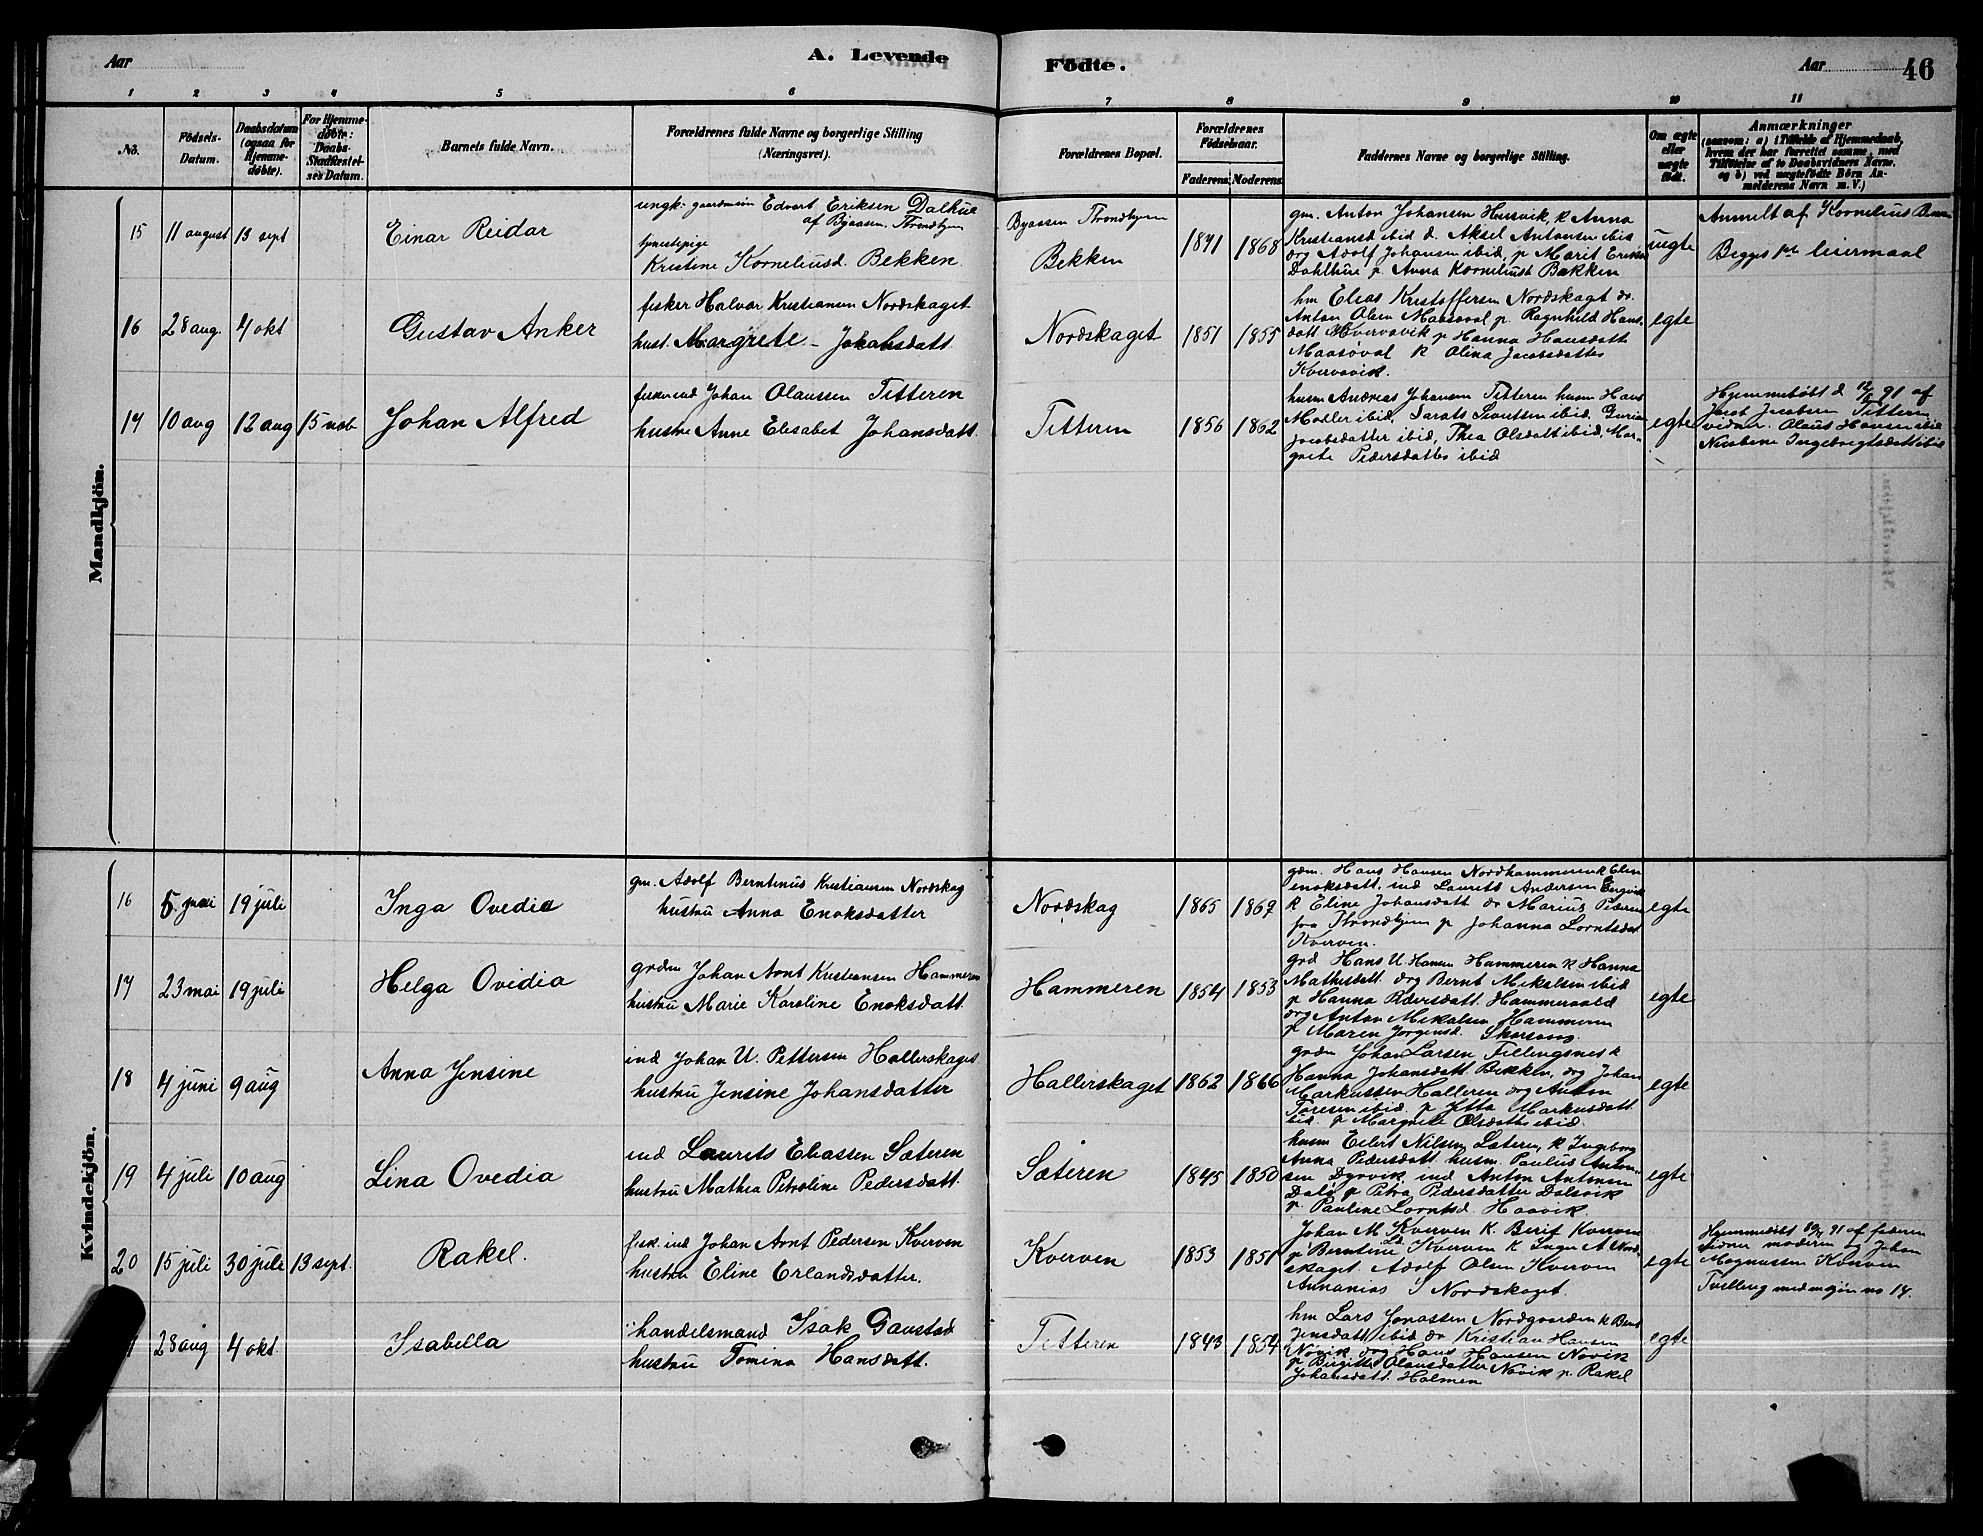 Aar
A. Levende
Födte.
Aar
46
1 2 3 4 5 6 7 8 9 10 11
No.
Födsels-
Datum.
Daabsdatum
(ogsaa for
Hjemme-
döbte).
For Hjemme-
döbte:
Daabs-
Stadfæstel-
ses Datum.
Barnets fulde Navn.
Forældrenes fulde Navne og borgerlige Stilling
(Næringsvei).
Forældrenes Bopæl.
Forældrenes
Födselsaar.
Faderens.
Moderens.
Faddernes Navne og borgerlige Stilling.
Om ægte
eller
uægte
födt.
Anmærkninger
(saasom: a) i Tilfælde af Hjemmedaab,
hvem der har forrettet samme, med
Tilföielse af to Daabsvidners Navne,
og b) ved uægtefödte Börn An-
melderens Navn m. V.)
Mandkjön.
15
11 august
13 sept
Einar Reidar
ungk. gaardmein Edvart Eriksen Dalhue
af Byaasen, Throndhjem
tjenestepige
Kristine Korneliusd. Bekken.
Byaasen Throndhjem
Bekken
1871
1868
gm. Anton Johansen Husvik, k Anna
Kristiansd ibid d. Aksel Antonsen ibid
drg Adolf Johansen ibid, p Marit Eriksd
Dahlhue p Anna Korneliusd Bekken
uegte
Anmelt af Kornelius
Begges 1ste leiermaal
16
28 aug.
4 okt
Gustav Anker
fisker Halvar Kristiansen Nordskaget
hust. Margrete Johansdatt
Nordskaget
1851
1855
hm Elias Kristoffersen Nordskaget dr.
Anton Olsen Maasøval p. Ragnhild Hans-
datt Kvervavik p Hanna Hansdatt
Maasøval k Olina Jacobsdatter
Kvervavik.
egte
17
10 aug
12 aug
15 nob
Johan Alfred
Johan Olaussen Titteren
hustru Anne Elisabet Johansdatt.
Titteren
1856
1862
husm Andreas Johansen Titteren husm Hans
Møller ibid, ibid, Gurine
Jacobsdatter ibid, Thea Olsdatt ibid, Mar-
grete Pedersdatter ibid
egte
Hjemmedøbt d 12/8 91 af
Jacob Jacobsen Titteren
vidner. Olaus Hansen ibid
Ingebrigtsdatt ibid
Kvindekjön.
16
5 mai
19 juli
Inga Ovedia
gm. Adolf Berntinus Kristiansen Nordskag
hustru Anna Enoksdatter
Nordskag
1865
1867
gdm. Hans Hansen Nordhammeren k Elen
enoksdatt. ind Laurits Andersen Engvik
k Eline Johansdatt dr Marius Pedersen
fra Throndhjem p Johanna Lorntsdat
Kverven.
egte
17
23 mai
19 juli
Helga Ovidia
grdm Johan Arnt Kristiansen Hammeren
hustru Marie Karoline Enoksdatt.
Hammeren
1854
1853
grd Hans U. Hansen Hammeren k Hanna
Mathisdatt drg Bernt Mikalsen ibid
p Hanna Pedersdatt Hammervold
drg Anton Mikalsen Hammeren
p Maren Jørgensd.
egte
18
4 juni
9 aug
Anna Jensine
ind Johan U. Pettersen Hallerskaget
hustru Jensine Johansdatter
Hallerskaget
1862
1866
grdm Johan Larsen Fillingsnes k
Hanna Johansdatt Bekken, drg Johan
Markussen Halleren drg Anton
Toresen ibid. p Jetta Markusdatt
ibid. p Margrete Olsdatt ibid.
egte
19
4 juli
10 aug
Lina Ovedia
ind Laurits Eliassen Sæteren
hustru Mathea Petroline Pedersdatt.
Sæteren
1845
1850
husm Eilert Nilsen Sæteren, k Ingeborg
Anna Pedersdatt husm. Paulus Anton-
sen Dyrvik ind Anton Antonsen
p Petra Pedersdatter Dalsvik
p. Pauline Lorntsd. Haavik.
egte
20
15 juli
30 juli
13 sept.
Rakel.
fisk. ind Johan Arnt Pedersen Kverven
hustru Eline Erlandsdatter.
Kverven
1853
1851
Johan M Kverven k. Berit Kverven
p Berntine Kverven k Inger A Nord-
skaget. Adolf Olsen Kverven
Annanias Nordskaget.
egte
Hjemmedøbt 30/7 91 af faderen
vidner moderen og Johan
Magnussen Kverven
Tvilling med no 14.
28 aug
4 okt.
Isabella
handelsmand Isak Gaustad
hustru Tomina Hansdatt.
Titteren
1843
1854
hm Lars Jonassen Nordgaarden k Berit
Jensdatt ibid dr Kristian Hansen
Nøvik drg Hans Hansen Nøvik
p Birgitte Olausdatter Nøvik p. Rakel
Johansdatt. Holmen
egte